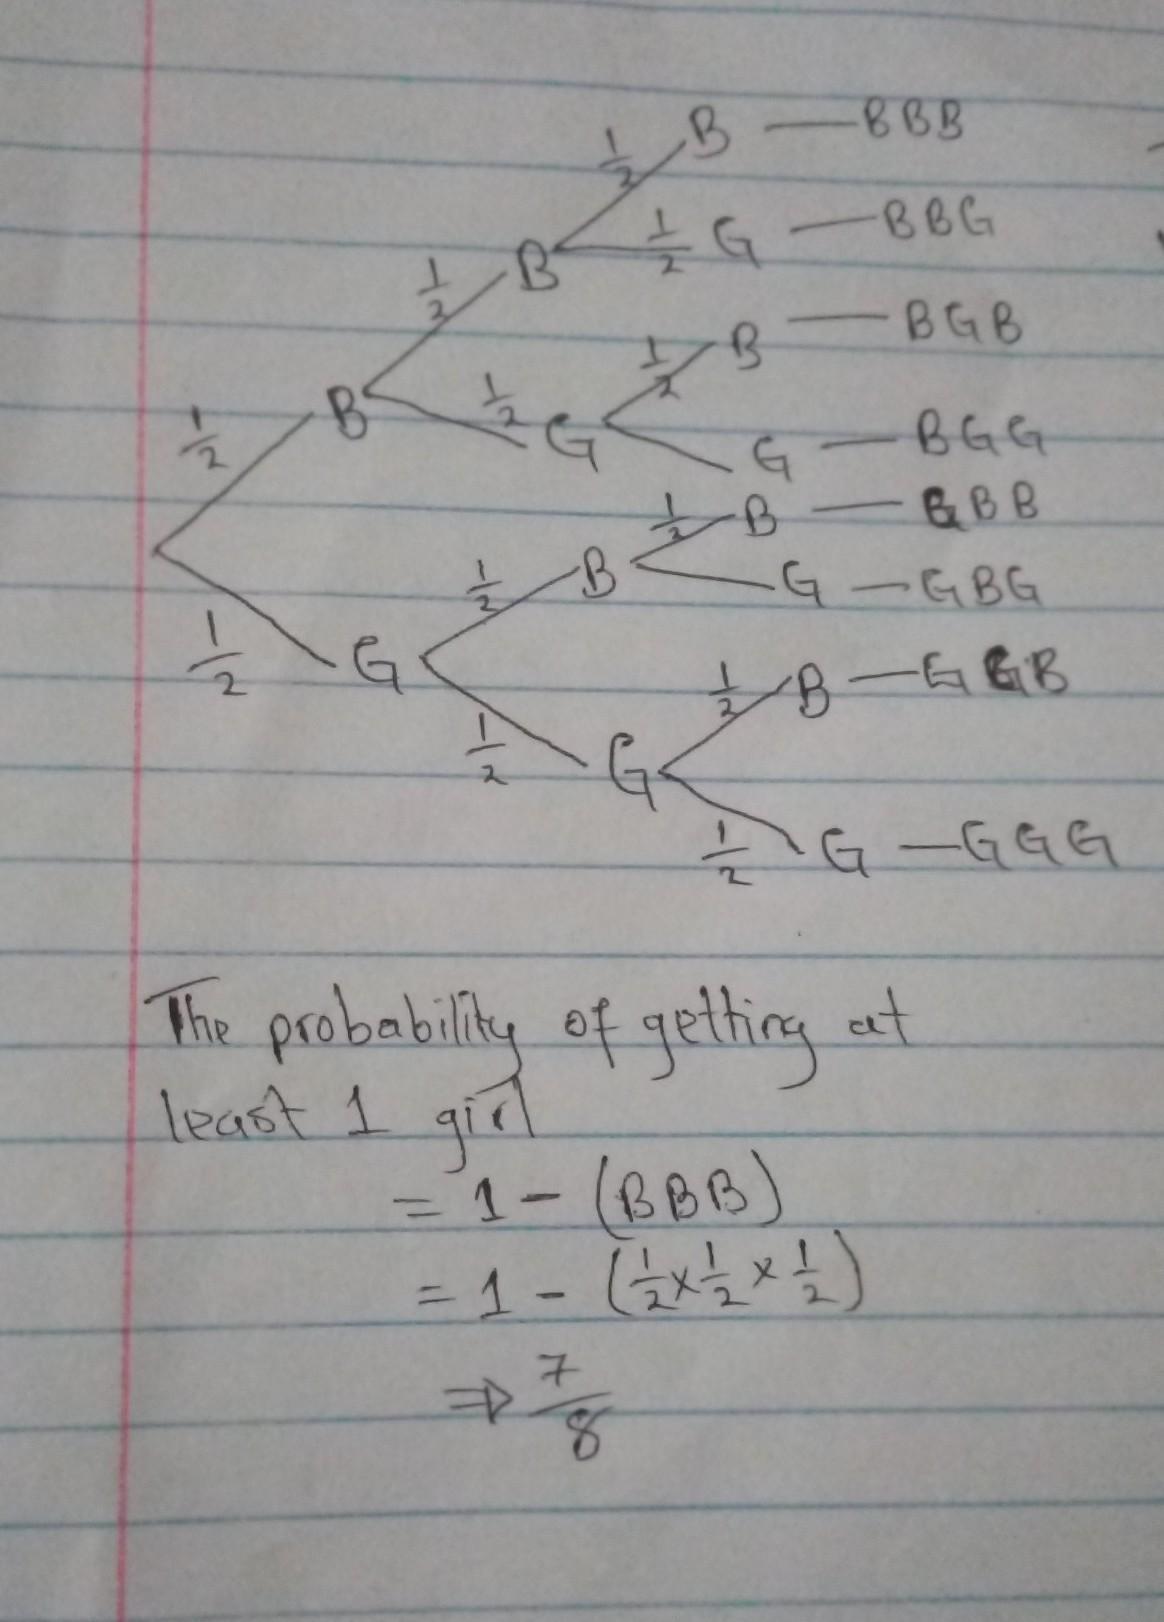 1/2 B — BBB
1/2 G — BBG
1/2 B
1/2 B — BGB
1/2 B
1/2 G
G — BGG
1/2 B — GBB
1/2 B
G — GBG
1/2 G
1/2 B — GGB
1/2 G
1/2 G — GGG
The probability of getting at
least 1 girl
= 1 - (BBB)
= 1 - (1/2 × 1/2 × 1/2)
⇒ 7/8